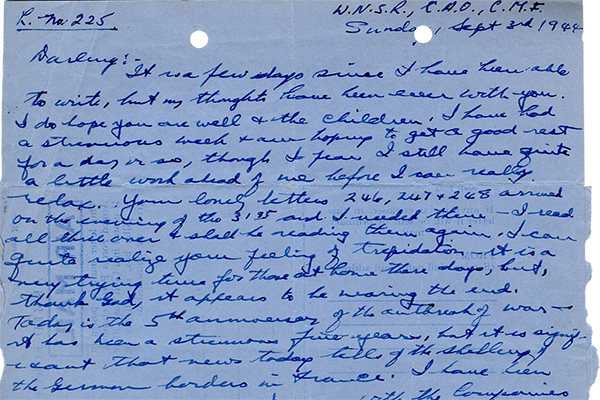 L. No 225.
W.N.S.R., C.A.O., C.M.F.
Sunday, Sept 3rd 1944
Darling:-
It is a few days since I have been able
to write, but my thoughts have been ever with you.
I do hope you are well & the children. I have had
a strenuous week & am hoping to get a good rest
for a day or so, though I fear I still have quite
a little work ahead of me before I can really
relax. Your lovely letters 246, 247 & 248 arrived
on the evening of the 31st and I needed them - I read
all three over & shall be reading them again. I can
quite realize your feeling of trepidation - it is a
very trying time for those at home these days, but,
thank God, it appears to be nearing the end.
Today is the 5th anniversary of the outbreak of war -
it has been a strenuous five years, but it is signif-
icant that news today tells of the shelling of
the German borders in France. I have been
with the Companies